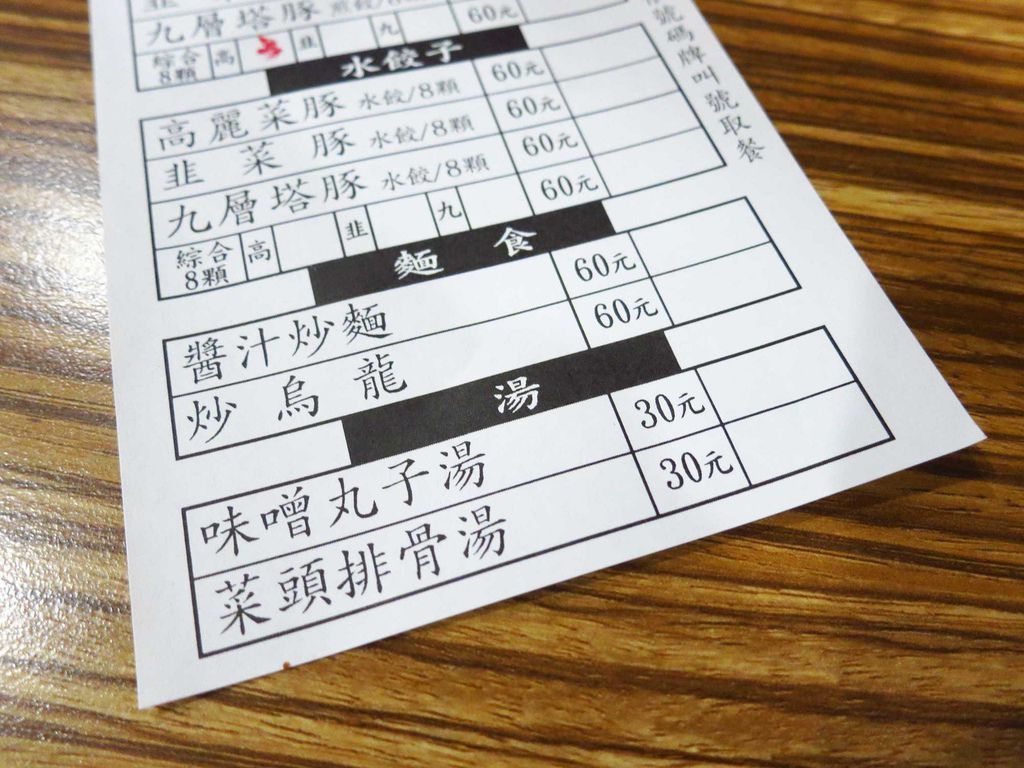 九層塔豚 煎餃/8 60元
綜合8顆 高 韭 九
水餃子
高麗菜豚 水餃/8顆 60元
韭菜豚 水餃/8顆 60元
九層塔豚 水餃/8顆 60元
綜合8顆 高 韭 九 60元
麵食
醬汁炒麵 60元
炒烏龍 60元
湯
味噌丸子湯 30元
菜頭排骨湯 30元
號碼牌叫號取餐